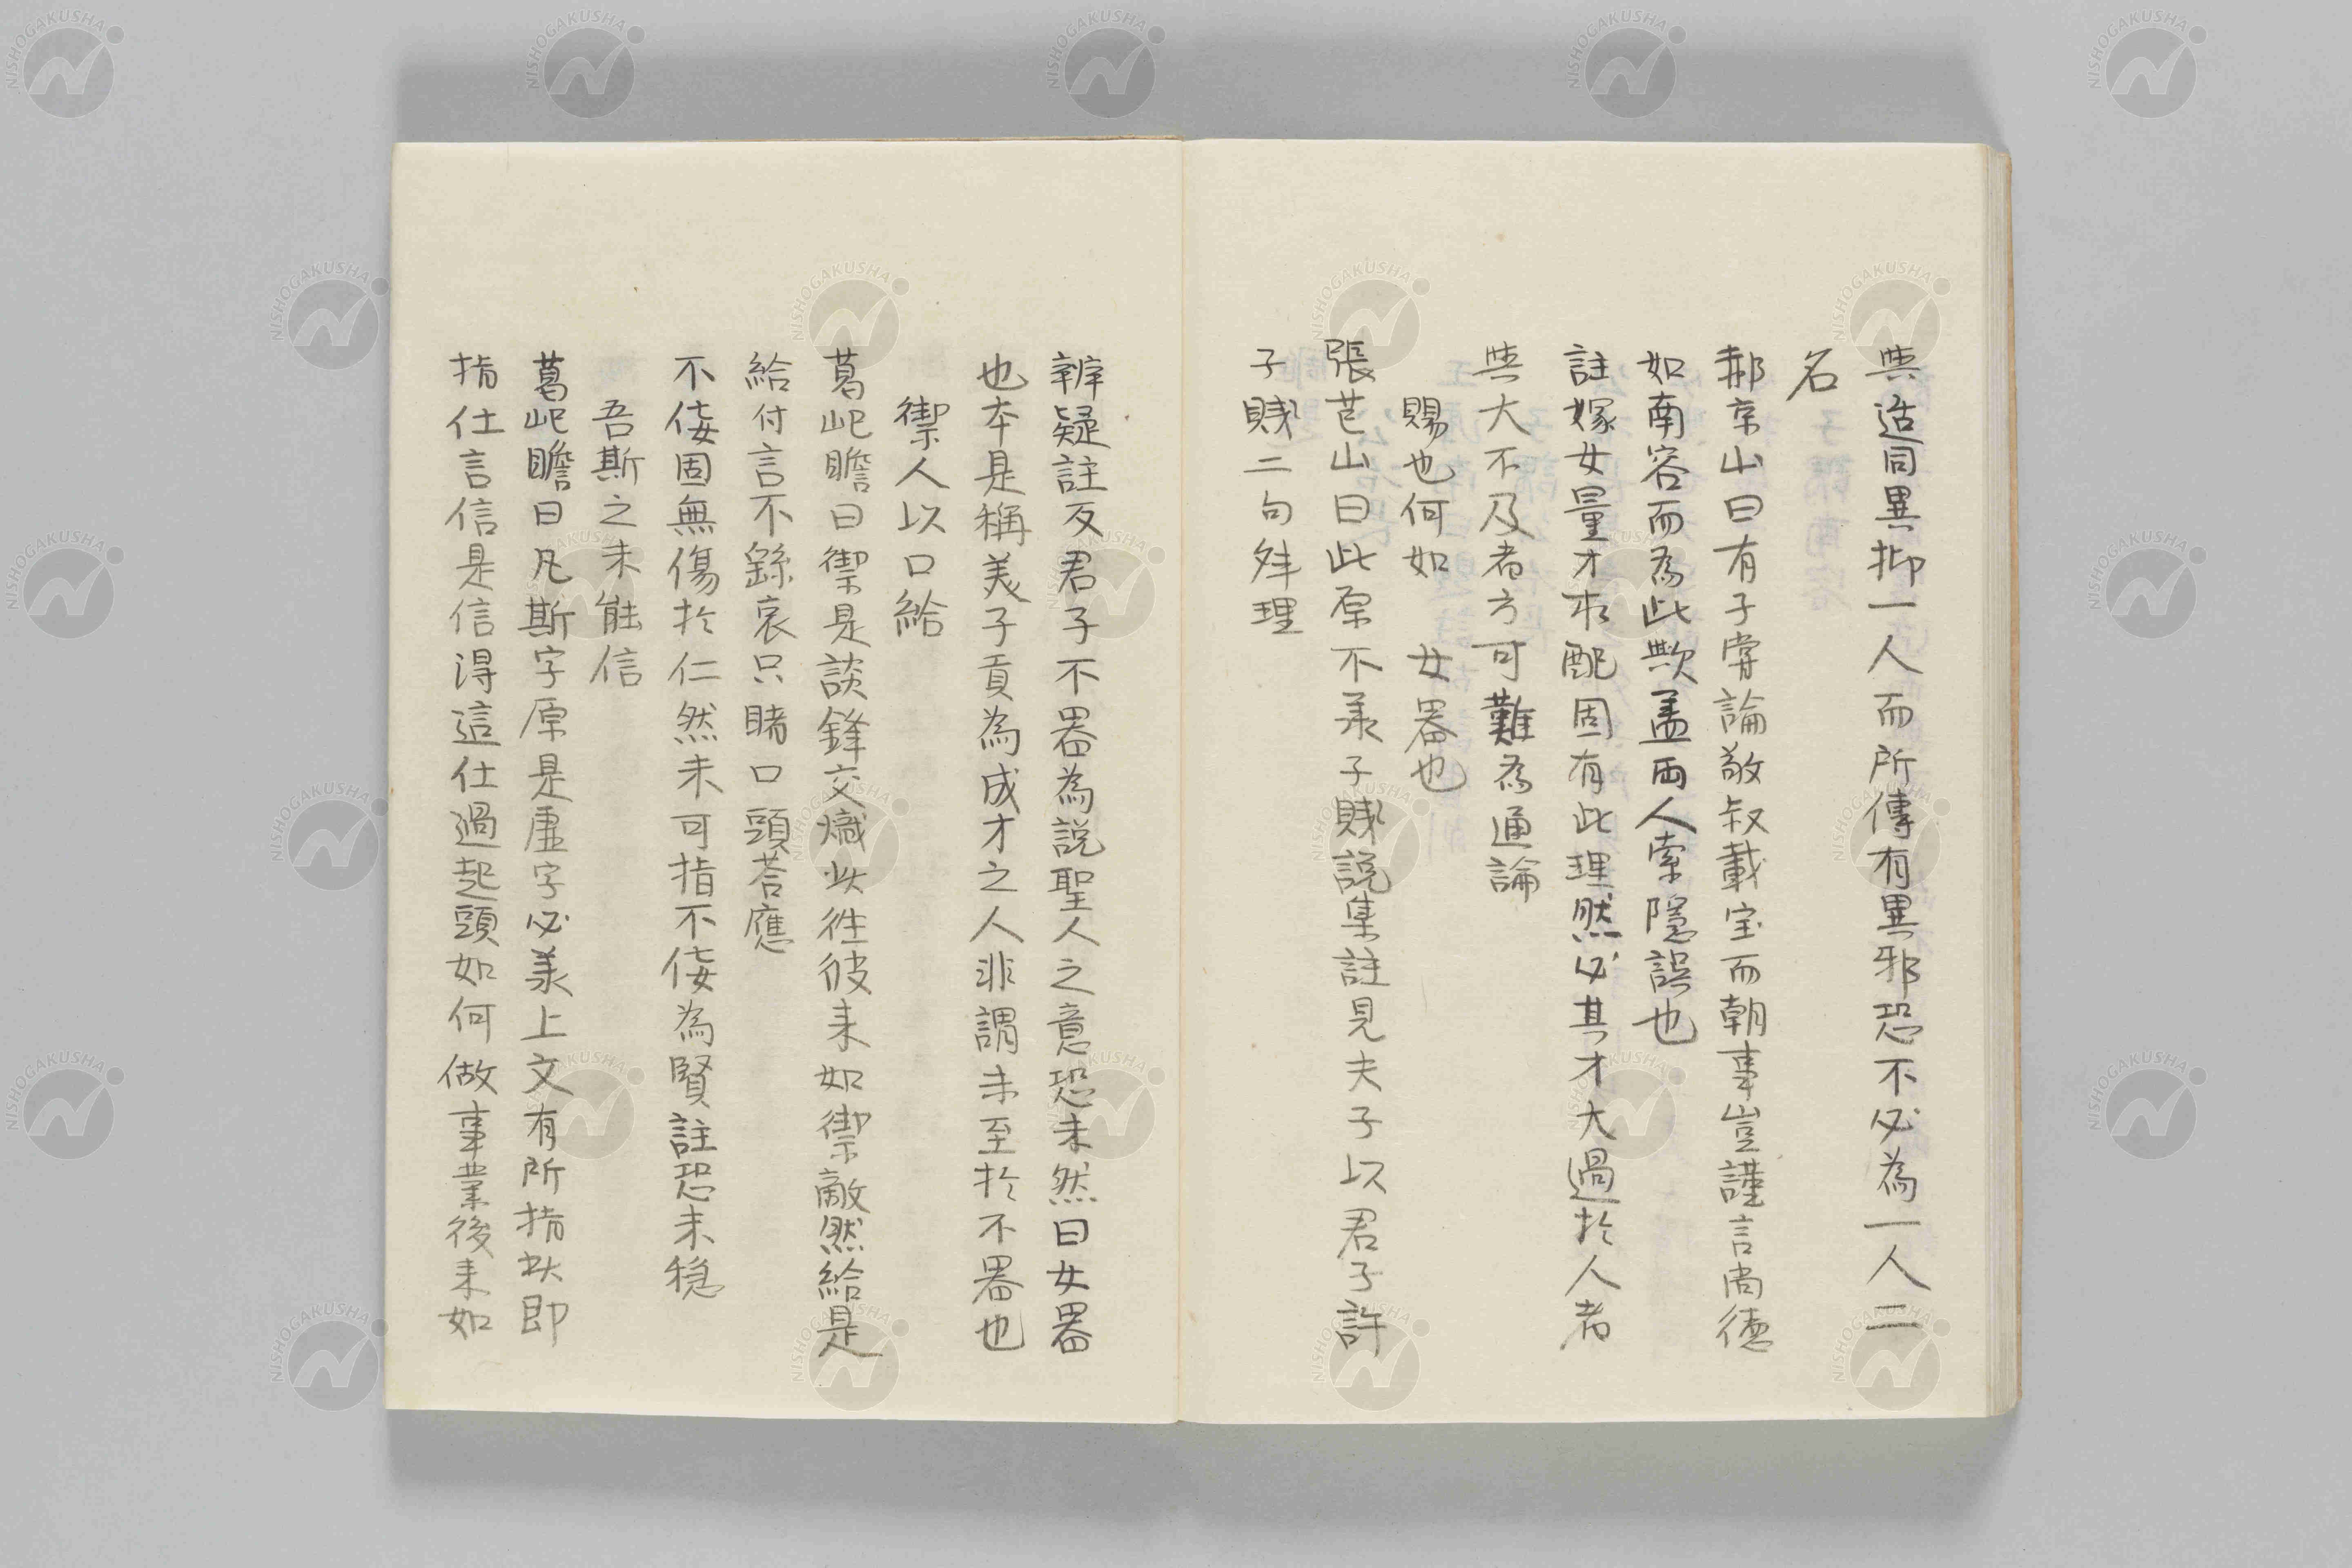 与造同異抑一人而所傳有異邪恐不必為一人二
名
郝京山曰有子嘗論敬叔載宝而朝事豈謹言尚德
如南容而為此歟盖両人索隱誤也
註嫁女量才求配固有此理然必其才大過於人者
与大不及者方可難為通論
賜也何如　女器也
張芑山曰此原不承子賤説集註見夫子以君子許
子賤二句殊理
辨疑註反君子不器為説聖人之意恐未然曰女器
也本是稱美子貢為成才之人非謂未至於不器也
禦人以口給
葛屺瞻曰禦是談鋒交熾此往彼来如禦敵然給是
給付言不繇衷只賭口頭荅應
不佞固無傷於仁然未可指不佞為賢註恐未穏
吾斯之未能信
葛屺瞻曰凡斯字原是虚字必承上文有所指此即
指仕言信是信得這仕過起頭如何做事業後来如
NISHOGAKUSHA